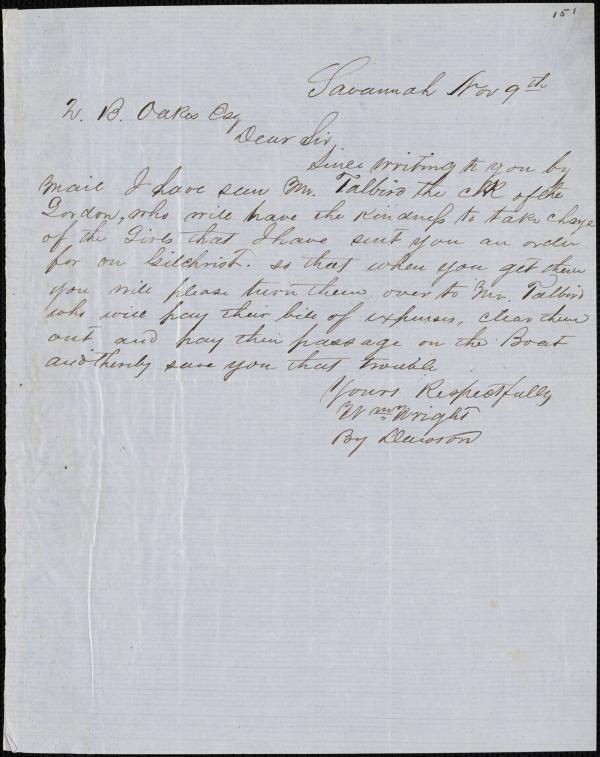 151
Savannah Nov 9th
Z. B. Oakes Esq
Dear Sir,
Since writing to you by
mail I have seen Mr. Talbird the clk of the
Gordon, who will have the kindness to take charge
of the Girls that I have sent you an order
for on Gilchrist. so that when you get them
you will please turn them over to Mr. Talbird
who will pay their bill of expenses, clear them
out and pay their passage on the Boat
and thereby save you that trouble
Yours Respectfully
Wm Wright
By Dawson